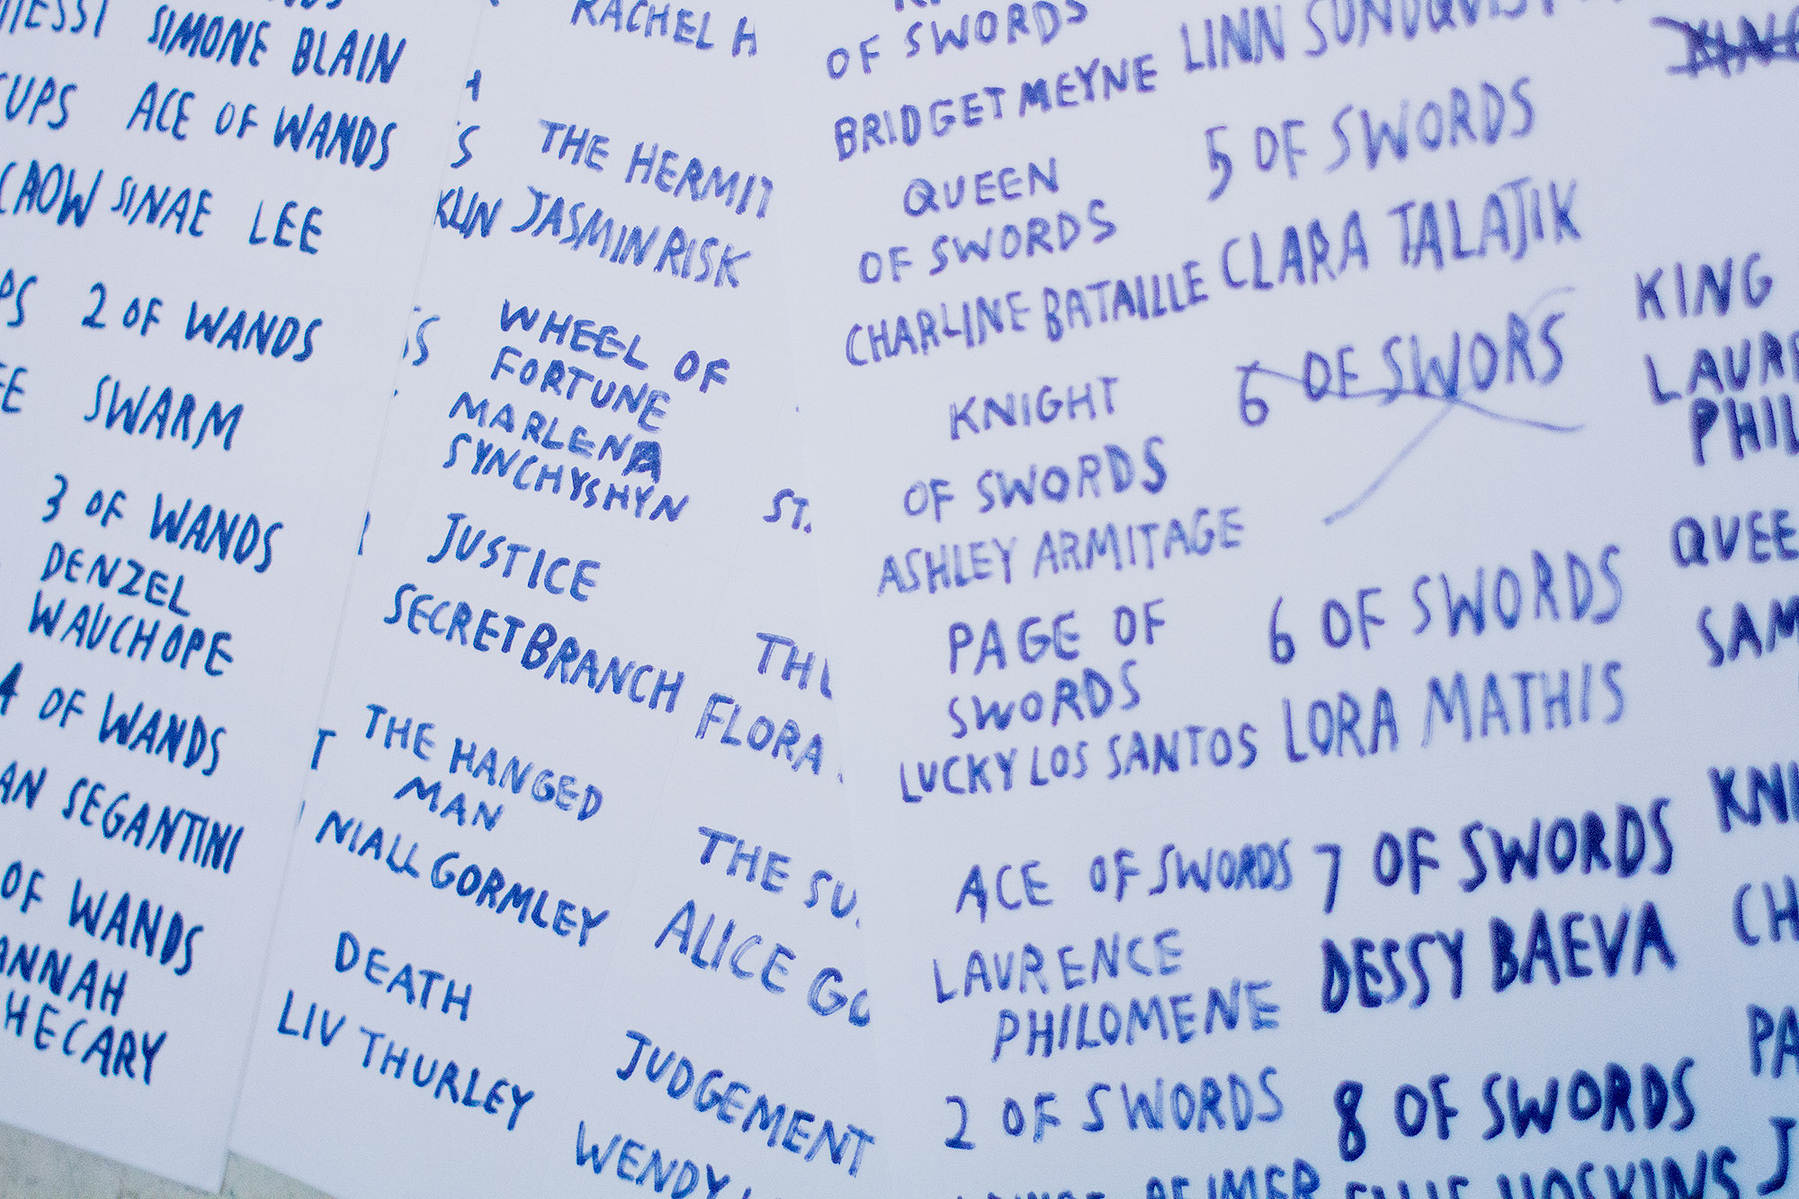 SIMONE BLAIN
CUPS ACE OF WANDS
SINAE LEE
2 OF WANDS
SWARM
3 OF WANDS
DENZEL
WAUCHOPE
4 OF WANDS
SEGANTINI
OF WANDS
RACHEL H
THE HERMIT
JASMIN RISK
WHEEL OF
FORTUNE
MARLENA
SYNCHYSHYN
ST.
JUSTICE
SECRET BRANCH
FLORA
THE HANGED
MAN
NIALL GORMLEY
THE SU
ALICE GO
DEATH
LIV THURLEY
JUDGEMENT
WENDY
OF SWORDS
BRIDGET MEYNE
QUEEN
OF SWORDS
CHARLINE BATAILLE
KNIGHT
OF SWORDS
ASHLEY ARMITAGE
PAGE OF
SWORDS
LUCKY LOS SANTOS
ACE OF SWORDS
LAURENCE
PHILOMENE
2 OF SWORDS
LINN SUNDQVIST
5 OF SWORDS
CLARA TALAJIK
6 OF SWORS
6 OF SWORDS
LORA MATHIS
7 OF SWORDS
DESSY BAEVA
8 OF SWORDS
HOSKINS
KING
LAURE
PHIL
QUEE
SAM
KNI
CH
PA
J